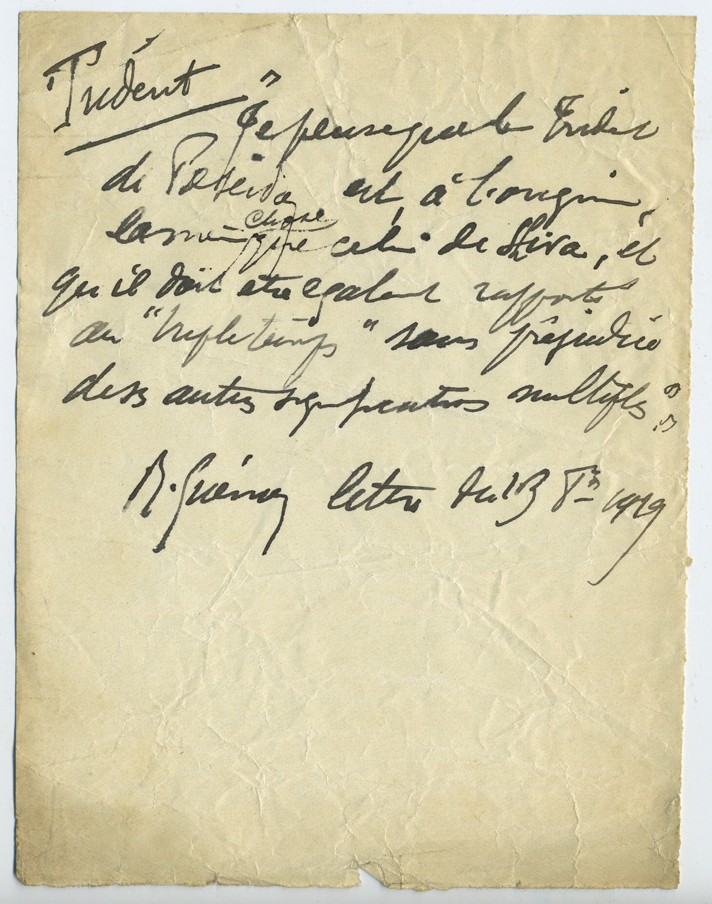 Trident
" Je pense que le Trident
de Poseidon est, à l'origine,
la même chose que celui de Shiva, et
qu'il doit être également rapporté
au "triple temps" sans préjudice
des autres significations multiples."
R. Guénon lettre du 13 1929